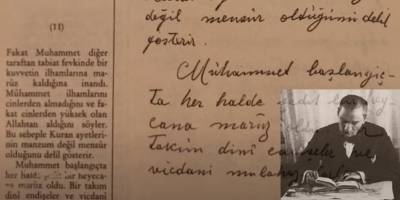 (11)
Fakat Muhammet diğer
taraftan tabiat fevkinde bir
kuvvetin ilhamlarına ma-
rüz kaldığına inandı.
Mühammet ilhamlarını
cinlerden almadığını ve fa-
kat cinlerden yüksek olan
Allahtan aldığını söyler.
Bu sebeple Kuran ayetleri-
nin manzum değil mensür
olduğunu delil gösterir.
Muhammet başlangıçta
her halde bir heyeca-
na maruz oldu. Bir takım
dini endişeler ve vicdani
değil mensür olduğunu delil
gösterir.
Mühammet başlangıç-
ta her halde
cana maruz
takım dinî ve
vicdani